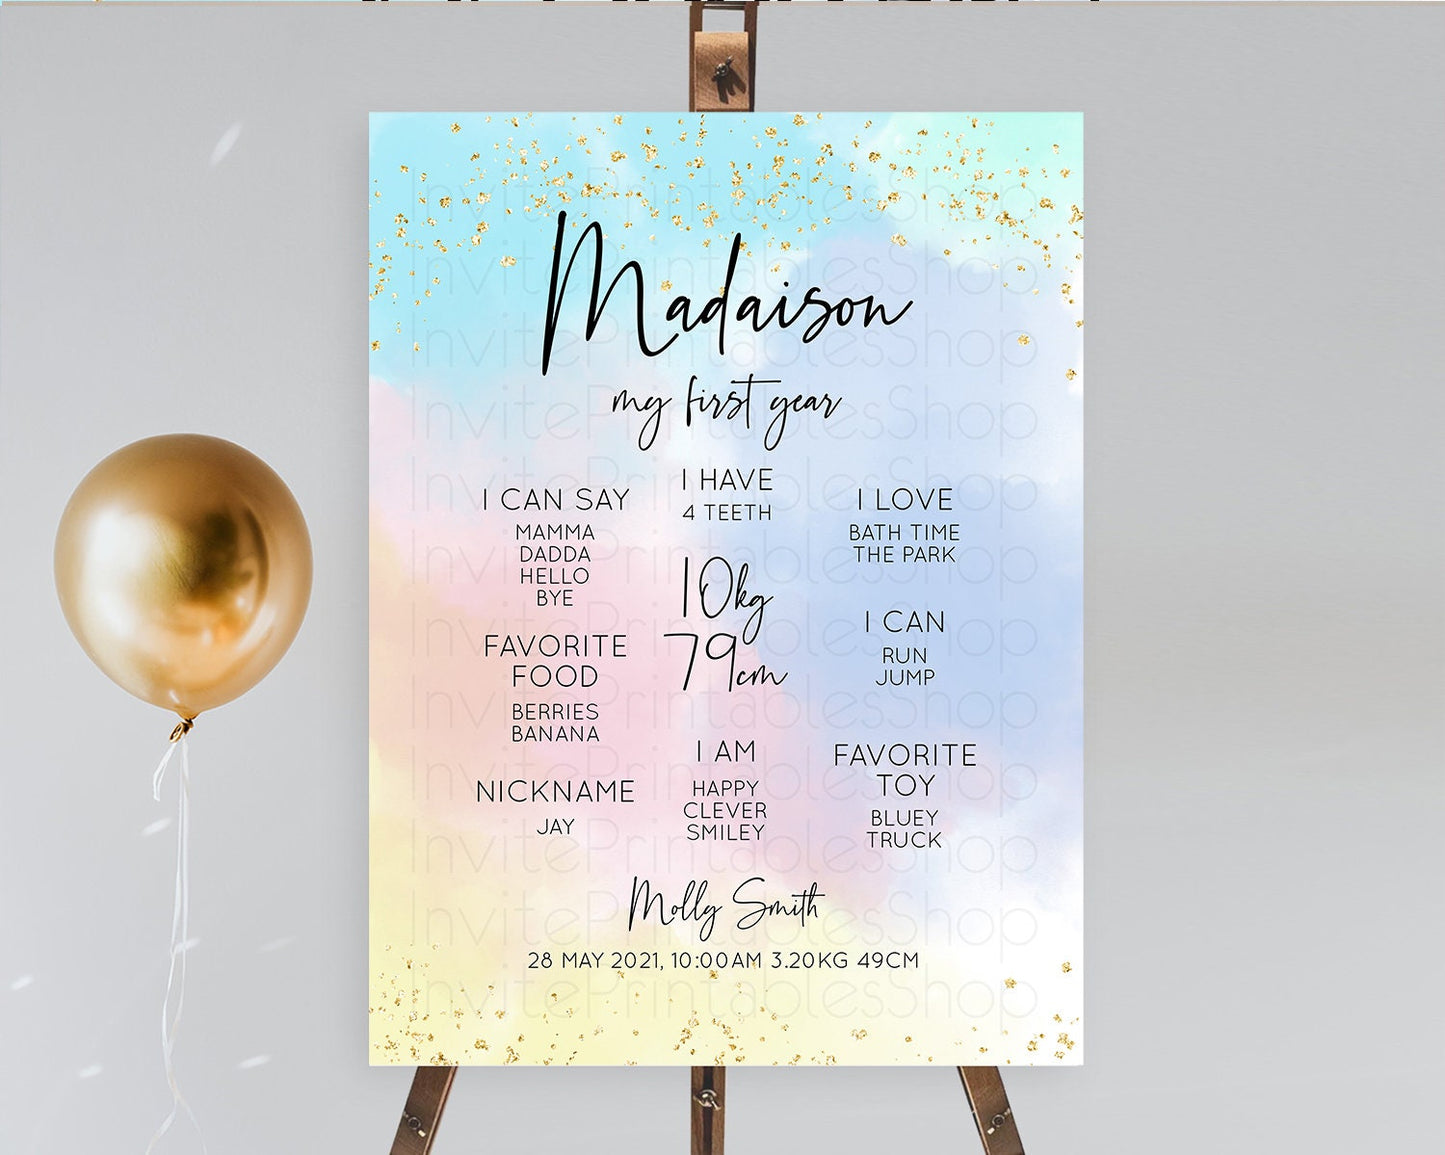 Madaison
my first year
I HAVE
4 TEETH
I CAN SAY
MAMMA
DADDA
HELLO
BYE
I LOVE
BATH TIME
THE PARK
10kg
79cm
I CAN
RUN
JUMP
FAVORITE
FOOD
BERRIES
BANANA
I AM
HAPPY
CLEVER
SMILEY
FAVORITE
TOY
BLUEY
TRUCK
NICKNAME
JAY
Molly Smith
28 MAY 2021, 10:00AM 3.20KG 49CM
InvitePrintablesShop
InvitePrintablesShop
InvitePrintablesShop
InvitePrintablesShop
InvitePrintablesShop
InvitePrintablesShop
InvitePrintablesShop
InvitePrintablesShop
InvitePrintablesShop
InvitePrintablesShop
InvitePrintablesShop
InvitePrintablesShop